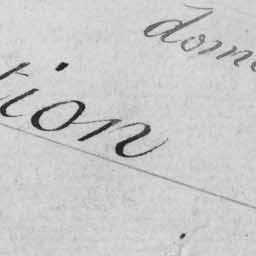 dom
tion